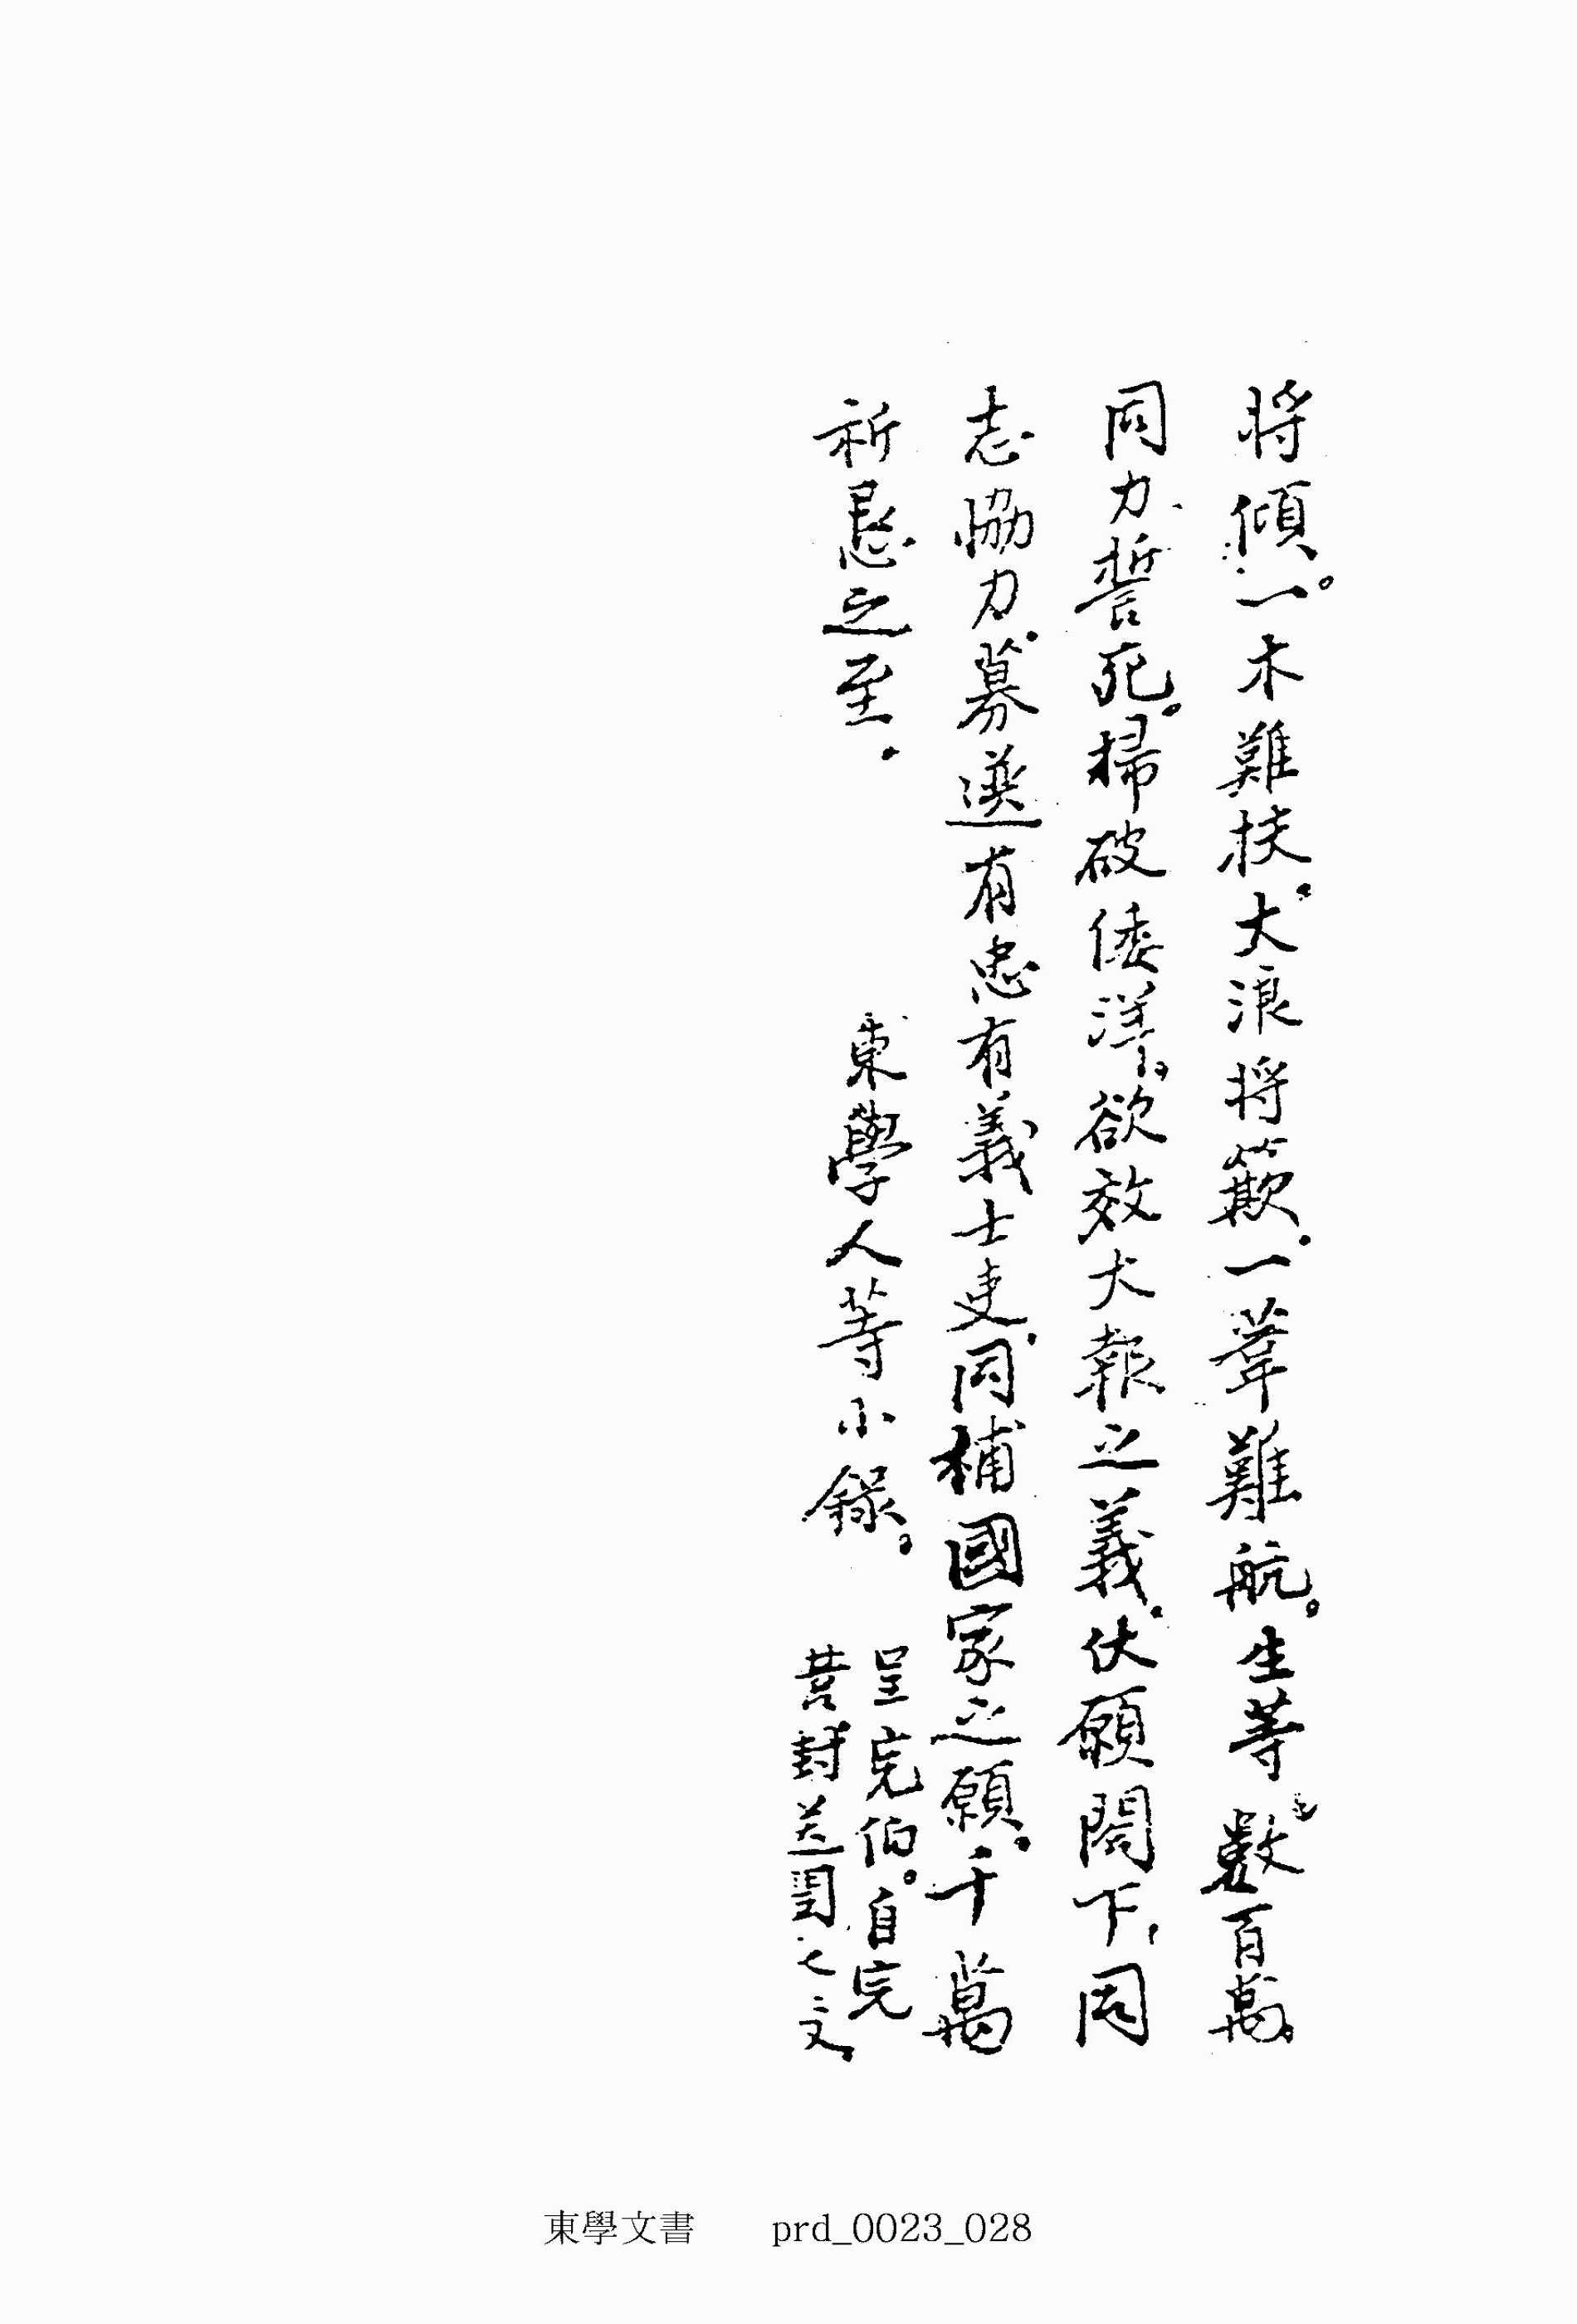 將傾。一木難扶。大浪將簸。一葦難航。生等數百萬。
同力誓死。掃破倭洋。欲效大報之義。伏願閤下。同
志協力。募選有忠有義士吏。同補國家之願。千萬
祈懇之至。
東學人等小錄。
呈完伯。自完
營封送
東學文書 prd_0023_028